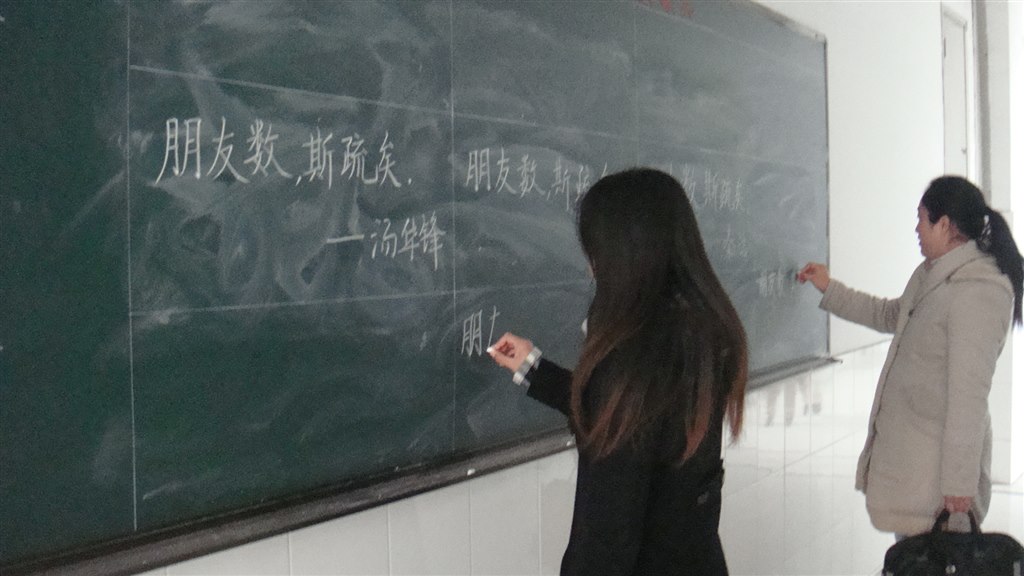 朋友数,斯疏矣.
—汤华锋
朋友数,斯疏
数,斯疏矣
朋